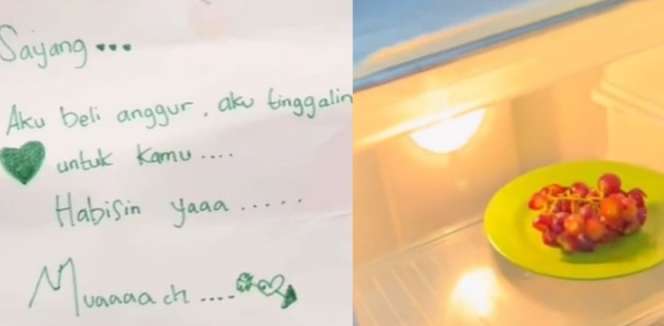 Sayang...
Aku beli anggur, aku tinggalin
untuk kamu....
Habisin yaaa.....
Muaaaach....